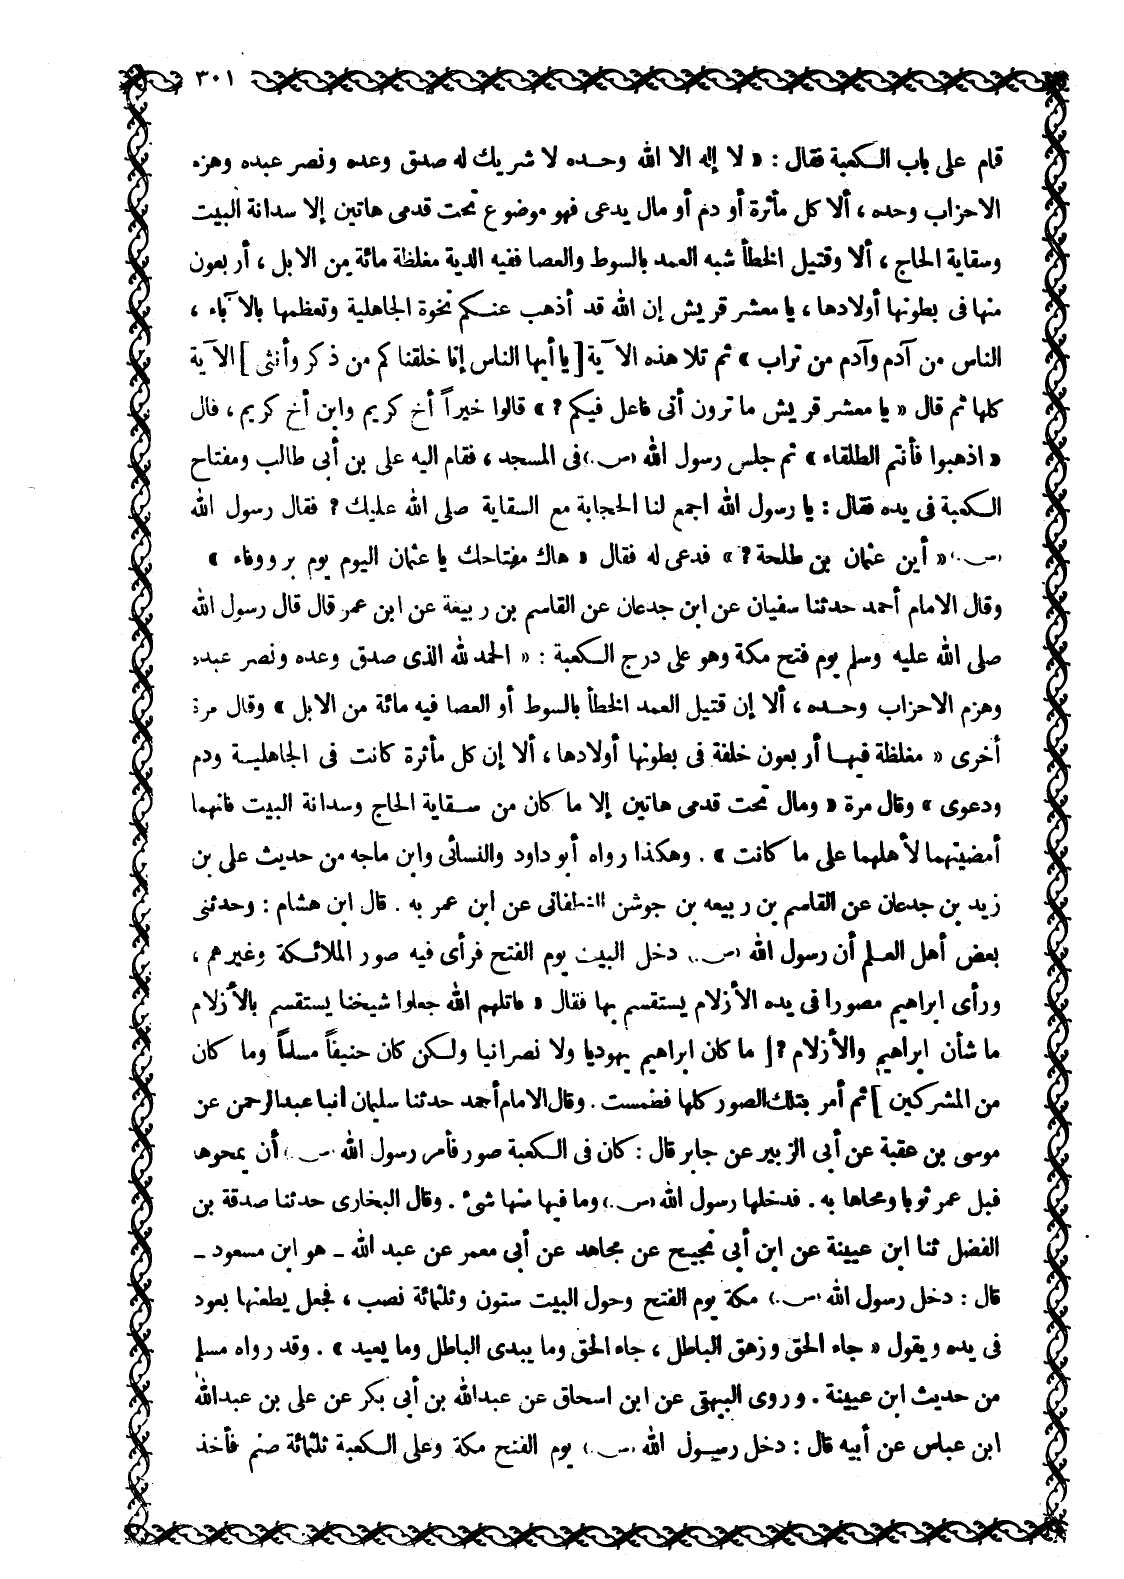 ٣٠١
قام على باب الكعبة فقال : « لا إله الا الله وحده لا شريك له صدق وعده ونصر عبده وهزم
الاحزاب وحده ، ألا كل مأثرة أو دم أو مال يدعى فهو موضوع تحت قدمى هاتين إلا سدانة البيت
وسقاية الحاج ، ألا وقتيل الخطأ شبه العمد بالسوط والعصا ففيه الدية مغلظة مائة من الابل ، أربعون
منها فى بطونها أولادها ، يا معشر قريش إن الله قد أذهب عنكم نخوة الجاهلية وتعظمها بالآباء ،
الناس من آدم وآدم من تراب » ثم تلا هذه الآية [ يا أيها الناس إنا خلقناكم من ذكر وأنثى ] الآية
كلها ثم قال « يا معشر قريش ما ترون أنى فاعل فيكم ? » قالوا خيراً أخ كريم وابن أخ كريم ، قال
« اذهبوا فأنتم الطلقاء » ثم جلس رسول الله (ص.) فى المسجد ، فقام اليه على بن أبى طالب ومفتاح
الكعبة فى يده فقال : يا رسول الله اجمع لنا الحجابة مع السقاية صلى الله عليك ? فقال رسول الله
(ص.) « أين عثمان بن طلحة ? » فدعى له فقال « هاك مفتاحك يا عثمان اليوم يوم بر ووفاء »
وقال الامام أحمد حدثنا سفيان عن ابن جدعان عن القاسم بن ربيعة عن ابن عمر قال قال رسول الله
صلى الله عليه وسلم يوم فتح مكة وهو على درج الكعبة : « الحمد لله الذى صدق وعده ونصر عبده
وهزم الاحزاب وحده ، ألا إن قتيل العمد الخطأ بالسوط أو العصا فيه مائة من الابل » وقال مرة
أخرى « مغلظة فيها أربعون خلفة فى بطونها أولادها ، ألا إن كل مأثرة كانت فى الجاهلية ودم
ودعوى » وقال مرة « ومال تحت قدمى هاتين إلا ما كان من سقاية الحاج وسدانة البيت فانهما
أمضيتهما لأهلهما على ما كانت » . وهكذا رواه أبو داود والنسائى وابن ماجه من حديث على بن
زيد بن جدعان عن القاسم بن ربيعه بن جوشن الغطفانى عن ابن عمر به . قال ابن هشام : وحدثنى
بعض أهل العلم أن رسول الله (ص.) دخل البيت يوم الفتح فرأى فيه صور الملائكة وغيرهم ،
ورأى ابراهيم مصورا فى يده الأزلام يستقسم بها فقال « قاتلهم الله جعلوا شيخنا يستقسم بالأزلام
ما شأن ابراهيم والأزلام ? [ ما كان ابراهيم يهوديا ولا نصرانيا ولكن كان حنيفاً مسلماً وما كان
من المشركين ] ثم أمر بتلك الصور كلها فطمست . وقال الامام أحمد حدثنا سليمان أنبا عبد الرحمن عن
موسى بن عقبة عن أبى الزبير عن جابر قال : كان فى الكعبة صور فأمر رسول الله (ص.) أن يمحوها
فبل عمر ثوبا ومحاها به . فدخلها رسول الله (ص.) وما فيها منها شىء . وقال البخارى حدثنا صدقة بن
الفضل ثنا ابن عيينة عن ابن أبى نجيح عن مجاهد عن أبى معمر عن عبد الله ـ هو ابن مسعود ـ
قال : دخل رسول الله (ص.) مكة يوم الفتح وحول البيت ستون وثلثمائة نصب ، فجعل يطعنها بعود
فى يده ويقول « جاء الحق وزهق الباطل ، جاء الحق وما يبدى الباطل وما يعيد » . وقد رواه مسلم
من حديث ابن عيينة . وروى البيهقى عن ابن اسحاق عن عبدالله بن أبى بكر عن على بن عبدالله
ابن عباس عن أبيه قال : دخل رسول الله (ص.) يوم الفتح مكة وعلى الكعبة ثلثمائة صنم فأخذ